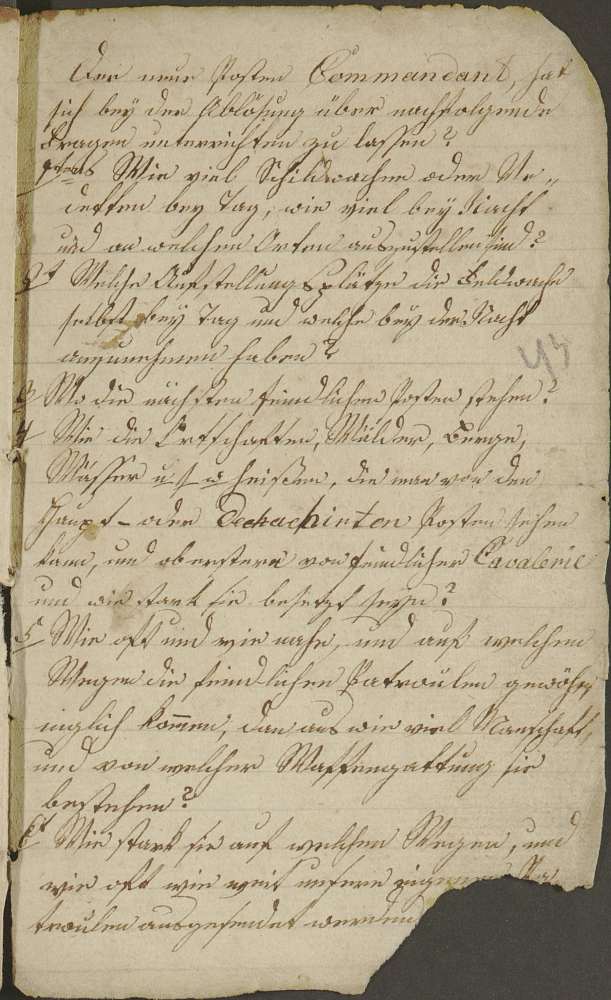 Der neue Posten Commandant, hat
sich bey der Ablösung über nachfolgende
Fragen unterrichten zu lassen?
1tens Wie viel Schildwachen oder Ve„
detten bey Tag, wie viel bey Nacht
und an welchen Orten auszustellen sind?
2t Welche Aufstellungsplätze die Feldwache
selbst bey Tag und welche bey der Nacht
anzunehmen haben?
43
3 Wo die nächsten feindlichen Posten stehen?
4 Wie die Ortschaften, Wälder, Berge,
Wässer u. s. w heißen, die man von den
Haupt- oder Deehachirten Posten sehen
kann, und ob erstere von feindlicher Cavalerie
und wie stark sie besetzt seyn?
5 Wie oft und wie nahe, und auf welchen
Wegen die feindlichen Patroulen gewöhn„
inglich kommen, dan aus wie viel Manschaft,
und von welcher Waffengattung sie
bestehen?
6t Wie stark sie auf welchen Wegen, und
wie oft wie weit unsere eigenen Pa„
troulen ausgesendet werden